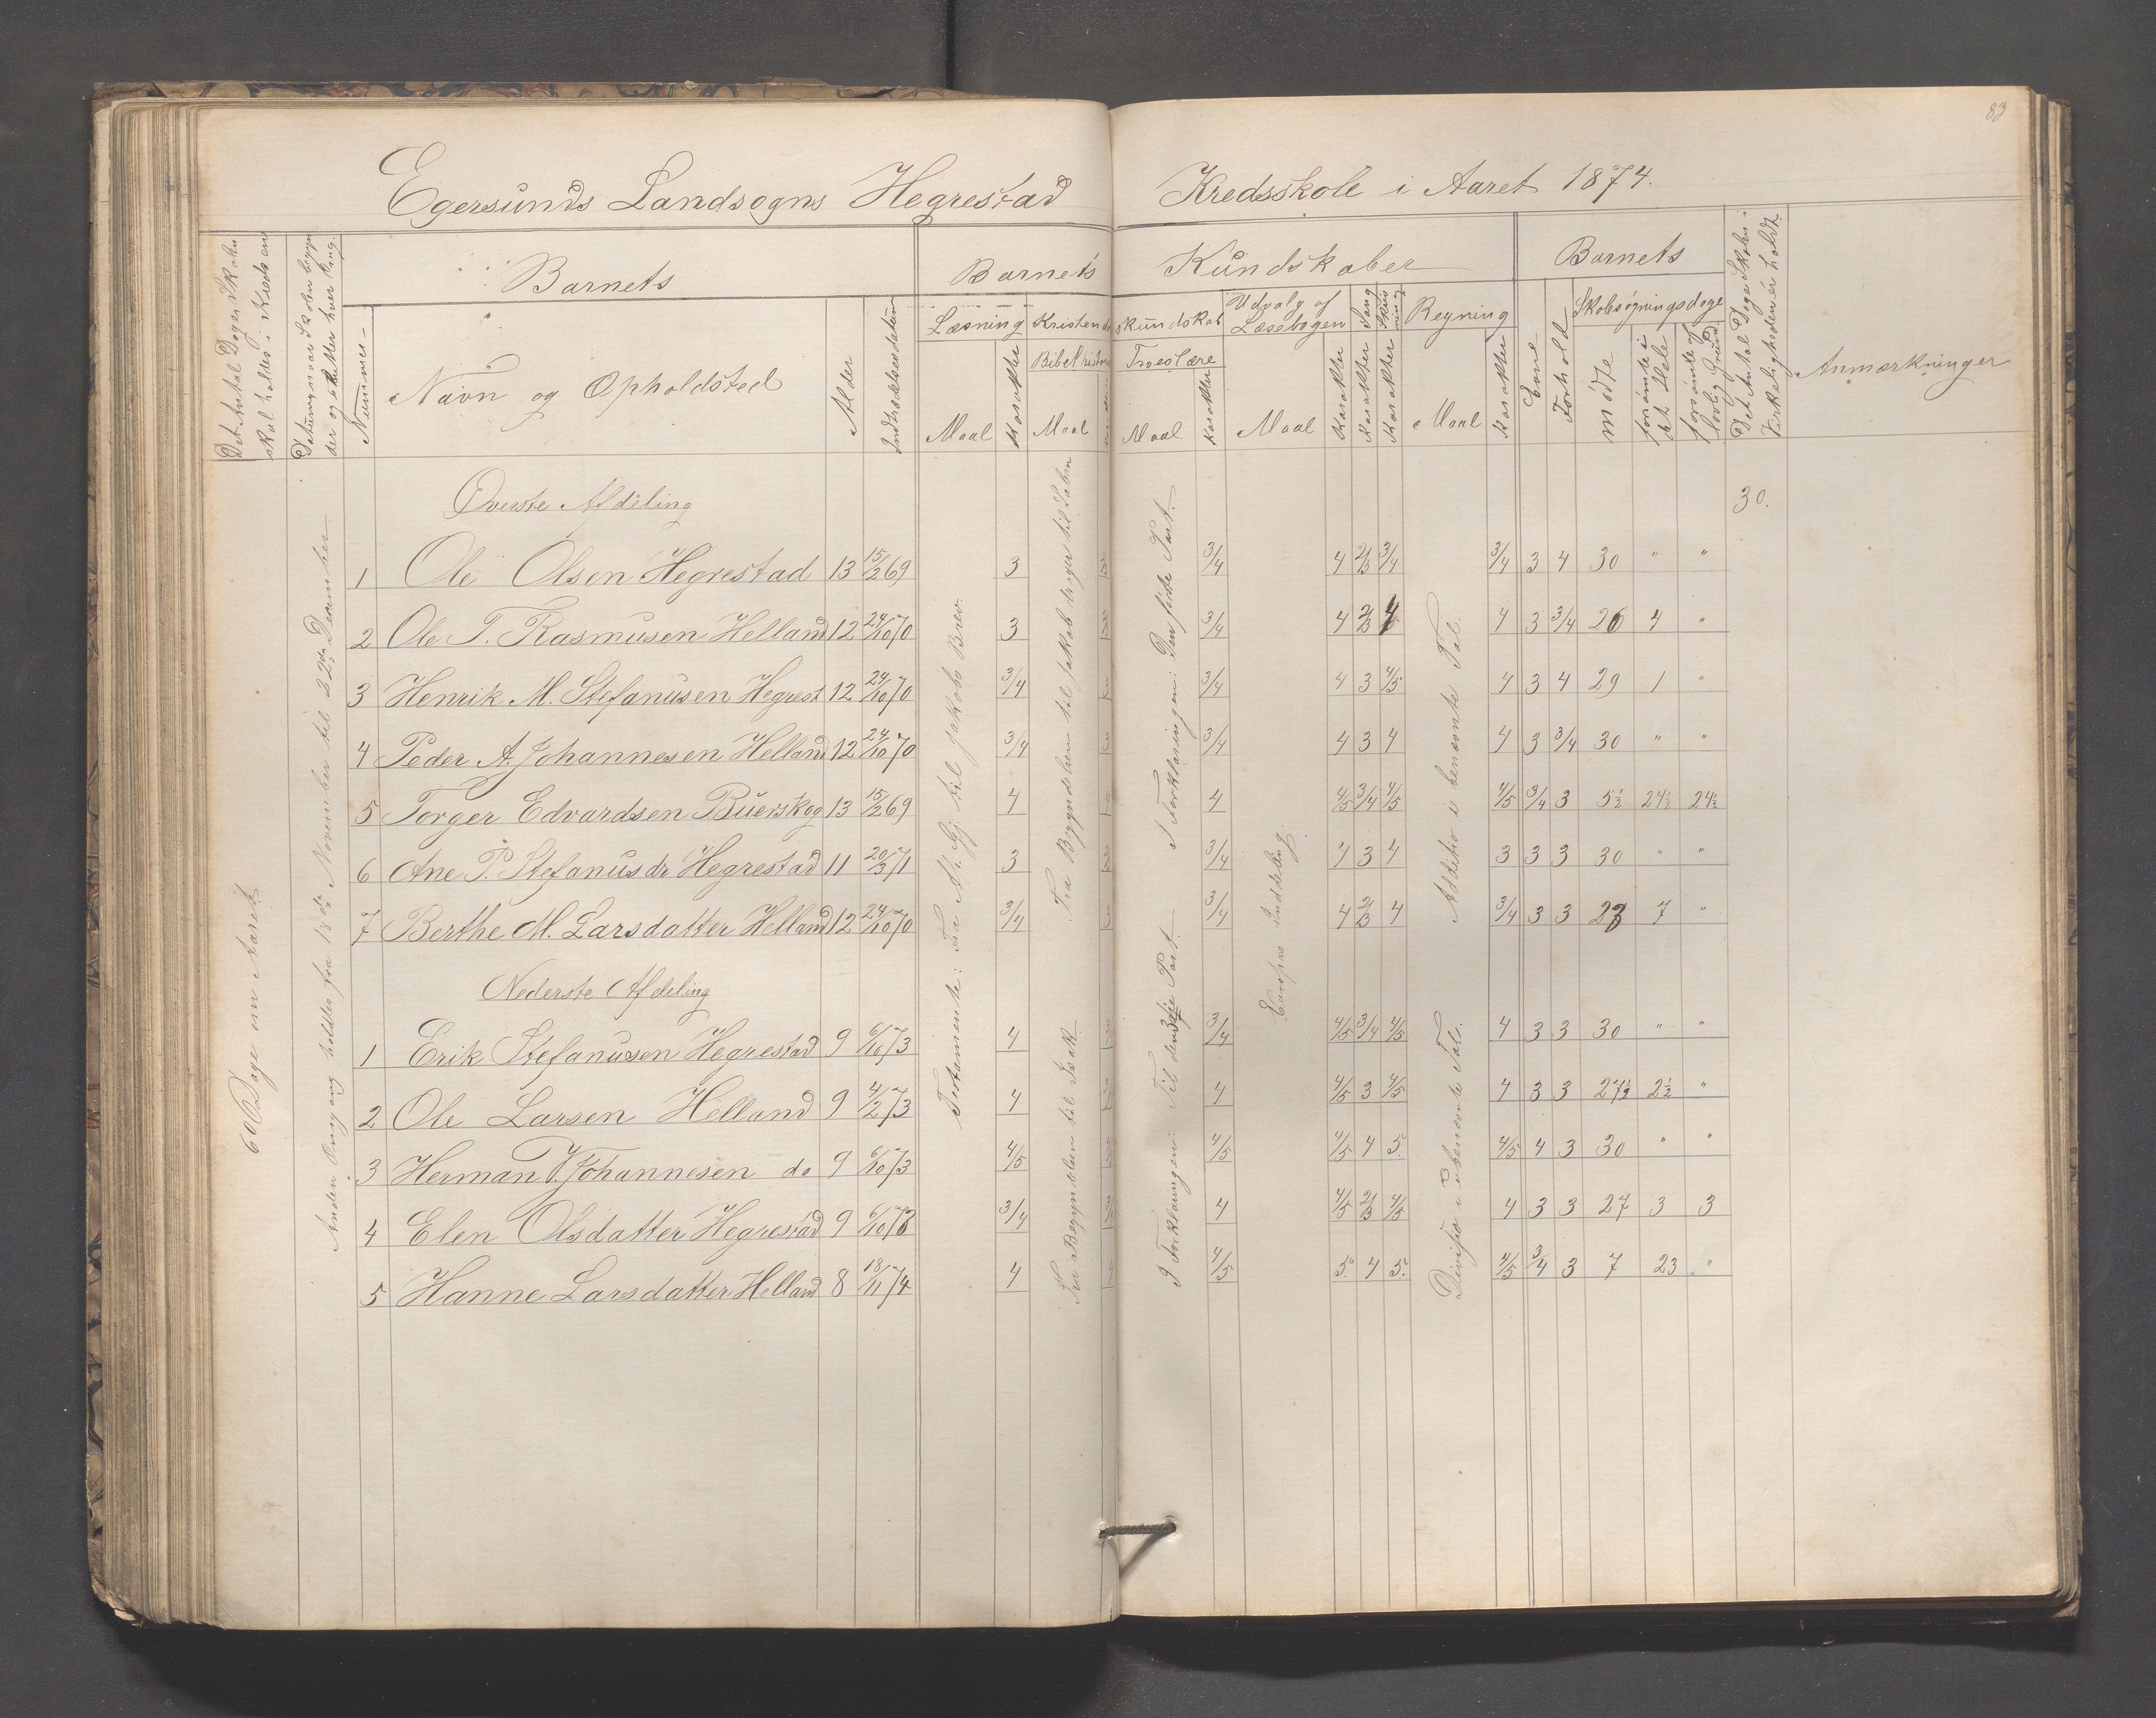 83
Egersunds Landsogns Hegrestad Kredsskole i Aaret 1874.
Det Antal Dage Skolen skal holdes i Kredsen
Datum, naar Skolen begynder og slutter hver Omg.
Barnets
Nummer
Navn og Opholdsted
Alder
Indtrædelsesdatum
Barnets Kundskaber
Læsning
Maal
Karakter
Kristendomskundskab
Bibelhistorie
Maal
Troeslære
Maal
Karakter
Udvalg af Læsebogen
Maal
Karakter
Sang
Karakter
Skrivning
Karakter
Regning
Maal
Karakter
Barnets
Evne
Forhold
Skolesøgningsdage
mødte
forsømte i det Hele
forsømte af lovlig Grund
Det Antal Dage Skolen i Virkeligheden er holdt.
Anmærkninger
60 Dage om Aaret
Anden Omgang holdtes fra 18de November til 22de December
Testamente: Fra Ap. Gj. til Jakobs Brev.
Fra Begyndelsen til Isak
I Forklaringen: Den første Part.
I Forklaringen: Til den 3die Part.
Europas Inddeling.
Additio i benævnte Tal.
Divisio i Ubenævnte Tal.
30.
Øverste Afdeling
1 Ole Olsen Hegrestad 13 15/2 69 3 3/4 4 2/3 3/4 3/4 3 4 30 " "
2 Ole T. Rasmusen Helland 12 24/10 70 3 3/4 4 2/3 4 4 3 3/4 26 4 "
3 Henrik M. Stefanusen Hegrest 12 24/10 70 3/4 3/4 4 3 4/5 4 3 4 29 1 "
4 Peder A. Johannesen Helland 12 24/10 70 3/4 3/4 4 3 4 4 3 3/4 30 " "
5 Torger Edvardsen Buerskog 13 15/2 69 4 4 4/5 3/4 4/5 4/5 3/4 3 5½ 24½ 24½
6 Ane P. Stefanusdr Hegrestad 11 20/3 71 3 3/4 4 3 4 3 3 3 30 " "
7 Berthe M. Larsdatter Helland 12 24/10 70 3/4 3/4 4 2/3 4 3/4 3 3 23 7 "
Nederste Afdeling
1 Erik Stefanusen Hegrestad 9 6/10 73 4 3/4 4/5 3/4 4/5 4 3 3 30 " "
2 Ole Larsen Helland 9 4/2 73 4 4 4/5 3 4/5 4 3 3 27½ 2½ "
3 Herman V. Johannesen do 9 6/10 73 4/5 4/5 4/5 4 5. 4/5 4 3 30 " "
4 Elen Olsdatter Hegrestad 9 6/10 73 3/4 4 4/5 2/3 4/5 4 3 3 27 3 3
5 Hanne Larsdatter Helland 8 18/11 74 4 4/5 5. 4 5. 4/5 3/4 3 7 23 "